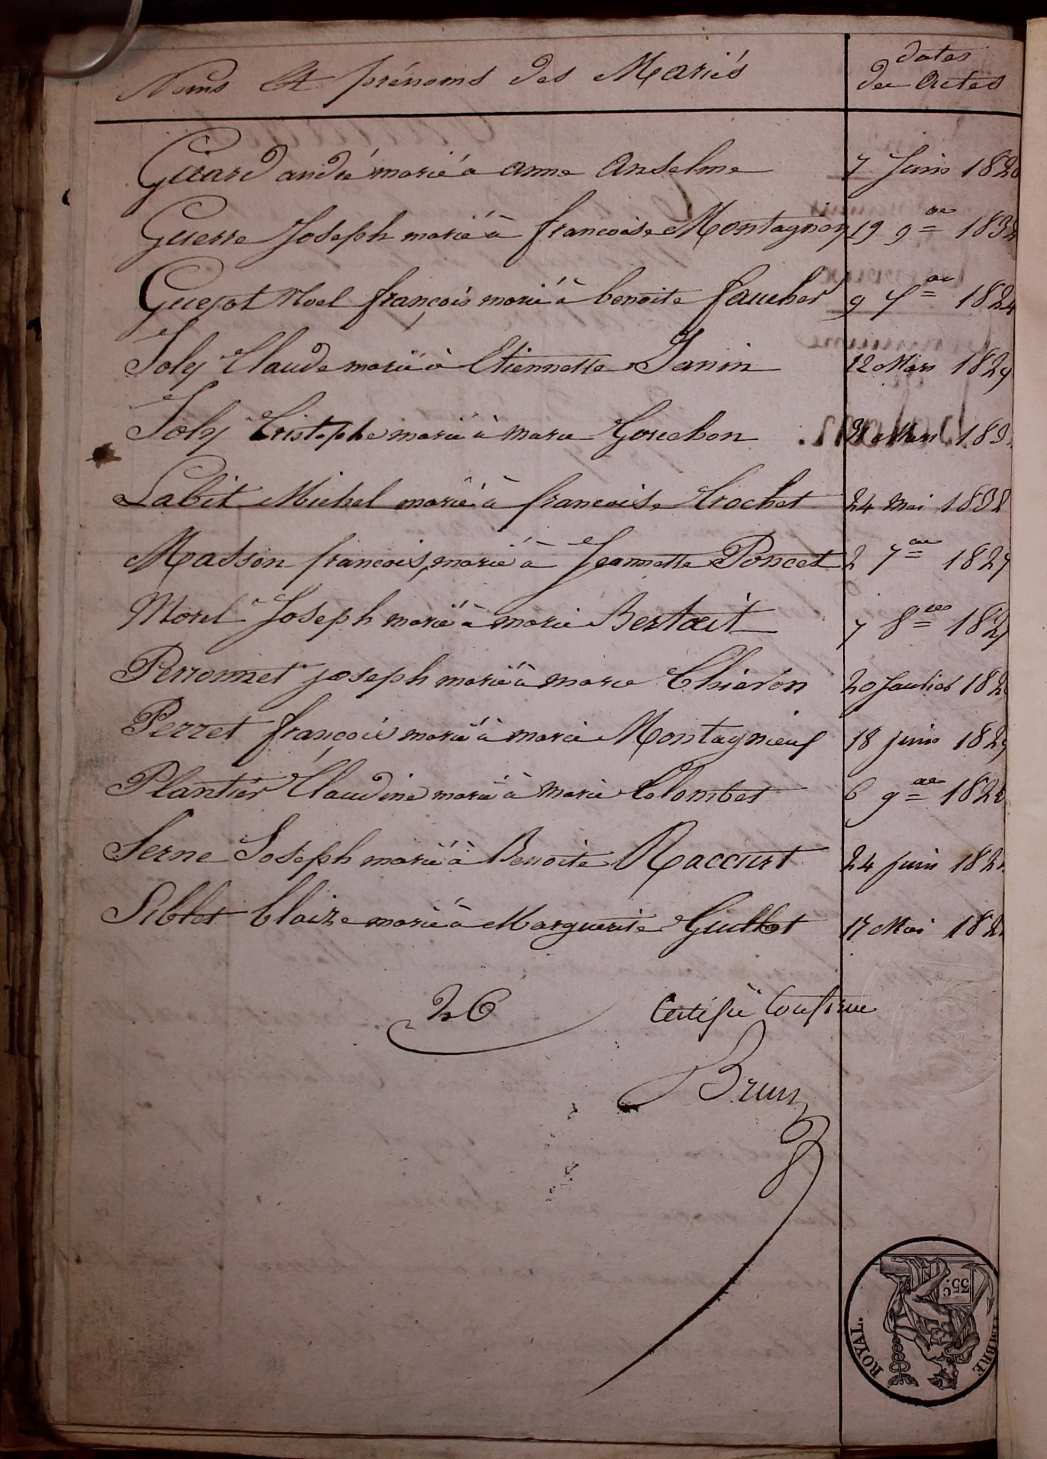 Noms et prénoms des Mariés
dates des Actes
Girard andré marié à anne Anselme 7 Juin 182
Guerre Joseph marié à francoise Montagnon 19 9bre 183
Guezot Noel françois marié à benoite faucher 9 7bre 1824
Joly Claude marié à Etiennette Janin 12 Mars 1829
Joly Cristophe marié à marie Gouchon Mars 183
Labit Michel marié à francoise Crochet 24 mai 1832
Masson francois marié à Jeannette Poncet 2 7bre 1829
Morel Joseph marié à marie Bertait 7 8bre 182
Perronnet joseph marié à marie Chiéron 20 Janvier 182
Perret françois marié à marie Montagnieuf 18 juin 1829
Plantier Claudine marié à Marie Colombet 6 9bre 182
Serne Joseph marié à Benoite Raccurt 24 juin 182
Siblet Claize marié à Marguerite Guillot 17 Mai 182
26 Certifié Conforme
Brun
ROYAL.
TIMBRE
35 C